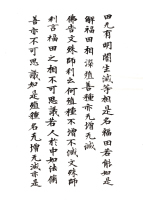 田无有明闇生滅等相是名福田若能如是
解福田相深殖善種亦无增无減
佛告文殊師利云何殖種不增不減文殊師
利言福田之相不可思議若人於中如法脩
善亦不可思議如是殖種名无增无減亦是